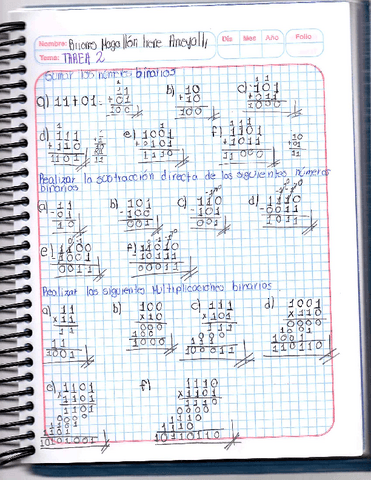 Nombre: Briones Magallón Irene Areyalli Día Mes Año Folio
Tema: TAREA 2
Sumar los números binarios
a) 11+01=
11
+01
100
b) 10
+10
100
c) 101
+011
1000
d) 111
+110
1101
e) 1001
+0101
1110
f) 1101
+1011
11000
Realizar la substracción directa de los siguientes números
binarios
a) 11
-01
10
b) 101
-100
001
c) 110
-101
001
d) 1110
-0011
1011
e) 1100
-1001
0011
f) 11010
-10111
00011
Realizar las siguientes Multiplicaciones binarios
a) 11
x11
11
11
1001
b) 100
x10
000
100
1000
c) 111
x101
111
000
100011
d) 1001
x110
0000
1001
1001
110110
e) 1101
x1101
1101
0000
1101
1101
10101001
f) 1110
x1101
1110
0000
1110
1110
10110110